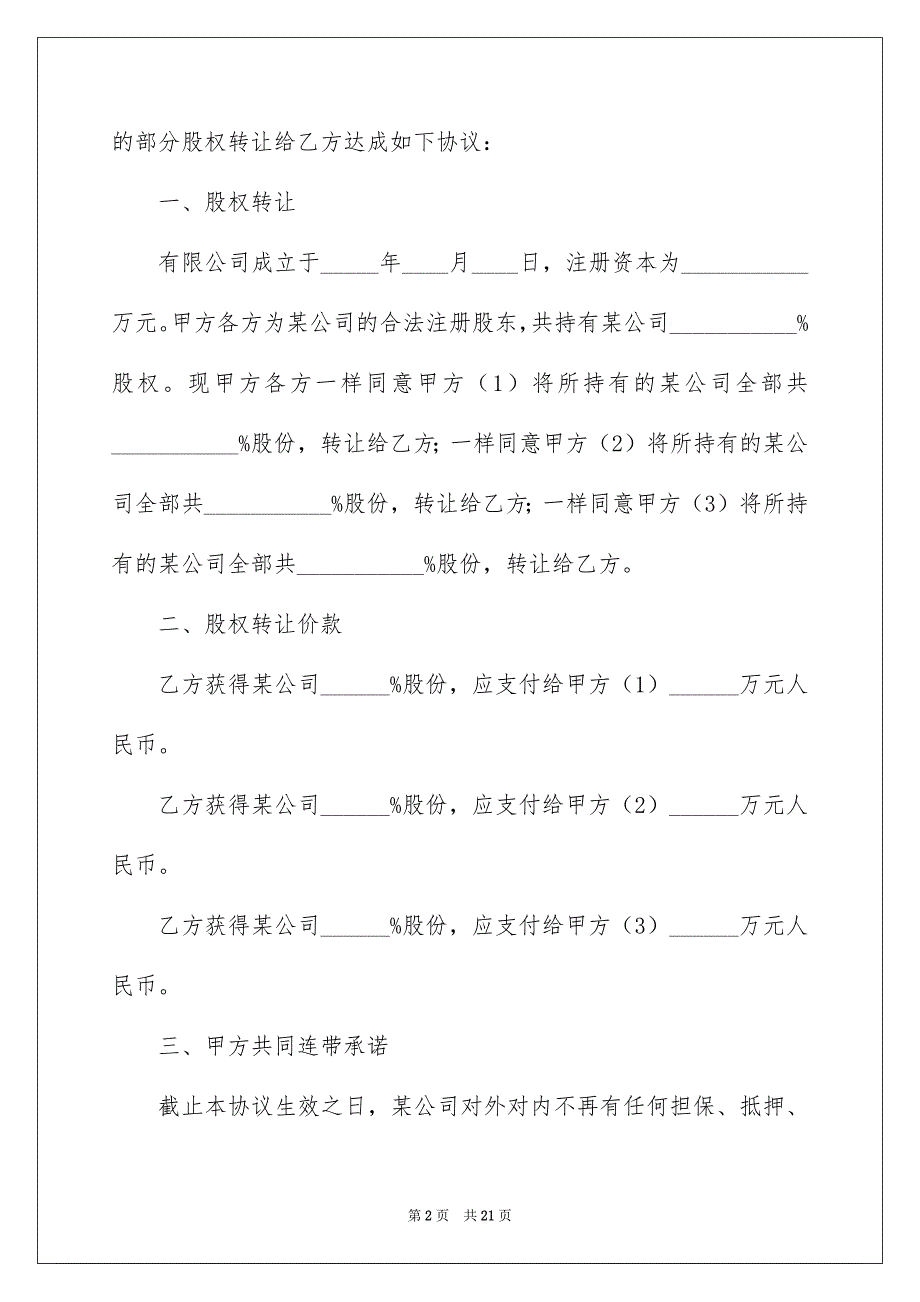 的部分股权转让给乙方达成如下协议：
一、股权转让
有限公司成立于_____年____月____日，注册资本为___________
万元。甲方各方为某公司的合法注册股东，共持有某公司___________%
股权。现甲方各方一样同意甲方（1）将所持有的某公司全部共
___________%股份，转让给乙方；一样同意甲方（2）将所持有的某公
司全部共___________%股份，转让给乙方；一样同意甲方（3）将所持
有的某公司全部共___________%股份，转让给乙方。
二、股权转让价款
乙方获得某公司______%股份，应支付给甲方（1）______万元人
民币。
乙方获得某公司______%股份，应支付给甲方（2）______万元人
民币。
乙方获得某公司______%股份，应支付给甲方（3）______万元人
民币。
三、甲方共同连带承诺
截止本协议生效之日，某公司对外对内不再有任何担保、抵押、
第 2 页 共 21 页